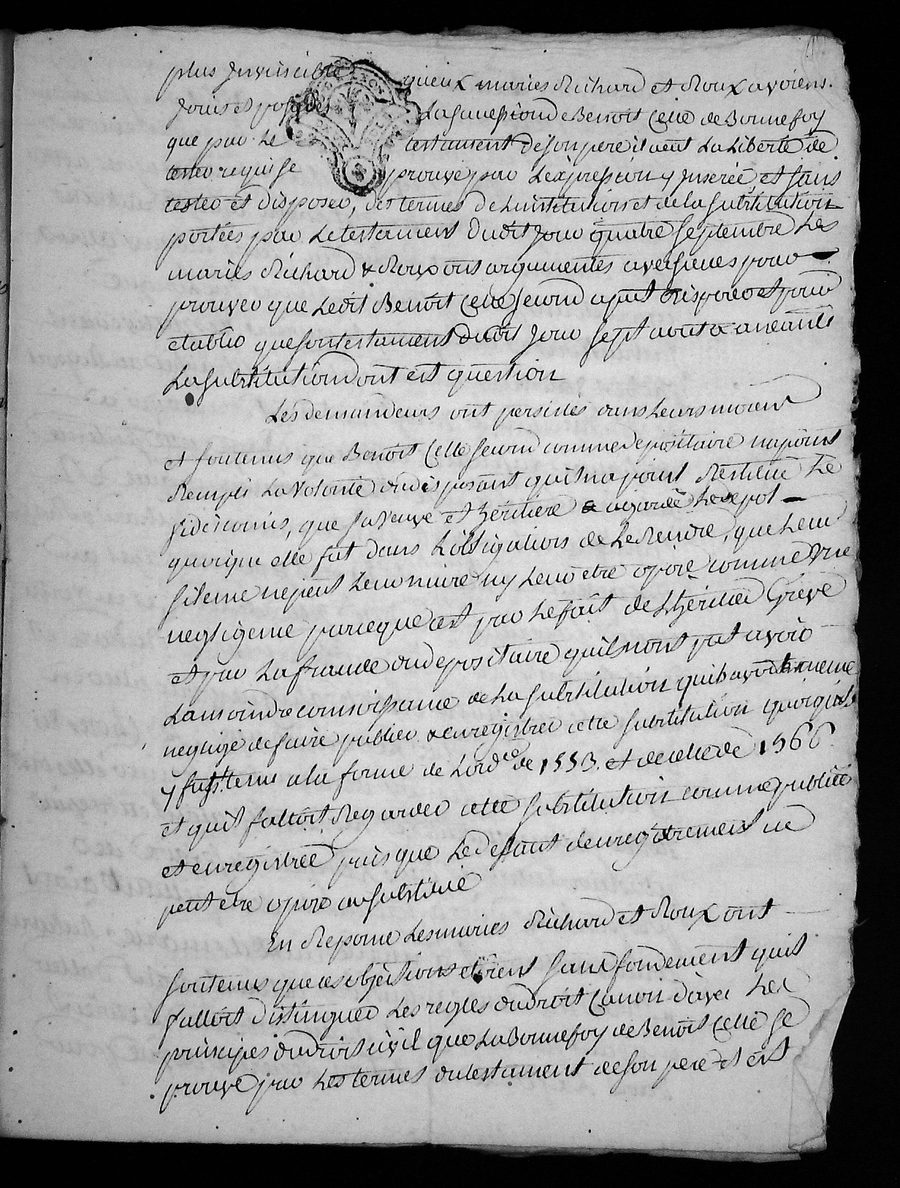 plus Invincible qu'eux maries Richard et Roux avoient
Joui et La guise second Benoit Celle de Bonnefoy
que par Le testament de son pere il aent La Liberté de
tester requise prouvé par L'expression y Inserée, et sans
tester et disposer, des termes de L'institution et de la substitution
portées par Le testament dudit Jour quatre septembre Les
maries Richard & Roux ont argumentés avers pour
prouver que Ledit Benoit Celle second aput disposer et pour
etablir que son testament dudit Jour sept aout a aneanti
La substitution dont est question
Les demandeurs ont persistés dans Leurs moiens
et soutenus que Benoit Celle second comme depositaire na point
Rempli La volonté du disposant quil na point Restitué Le
fideicomis, que sa veuve et héritière a gardé Le depot
quoique elle fut dans Lobligation de Le Rendre, que Leur
silence ne peut Leur nuire ny Leur etre oposé comme une
negligence parceque cest par Le fait de L'héritier Grevé
et par La fraude du depositaire quils nont pat avoir
La moindre connoissance de La substitution quils avoit meme
negligé de faire publier & enregistrer cette substitution quoiquils
y fust tenu a la forme de Lordce de 1553. et de celle de 1566.
et quil falloit Regarder cette substitution comme publiée
et enregistrée puisque Le defaut denregistrement ne
peut etre oposé au substitué
En Reponse Les maries Richard et Roux ont
soutenus que ces objections etoient sans fondement quil
falloit distinguer Les regles du droit Canon davec Les
principes du droit civil que La Bonnefoy de Benoit Celle se
prouve par Les termes du testament de son pere et est